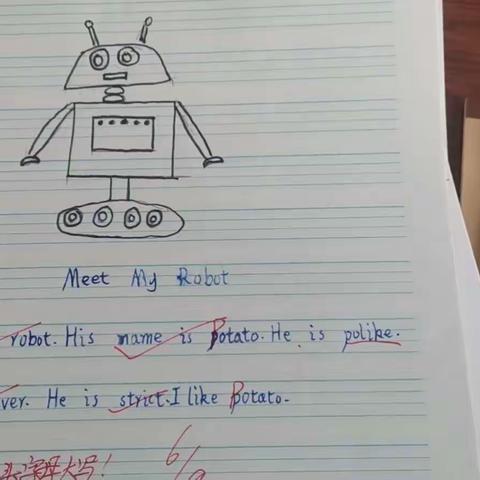 Meet My Robot
robot. His name is Potato. He is polike.
ver. He is strict. I like Potato.
头字母大写!